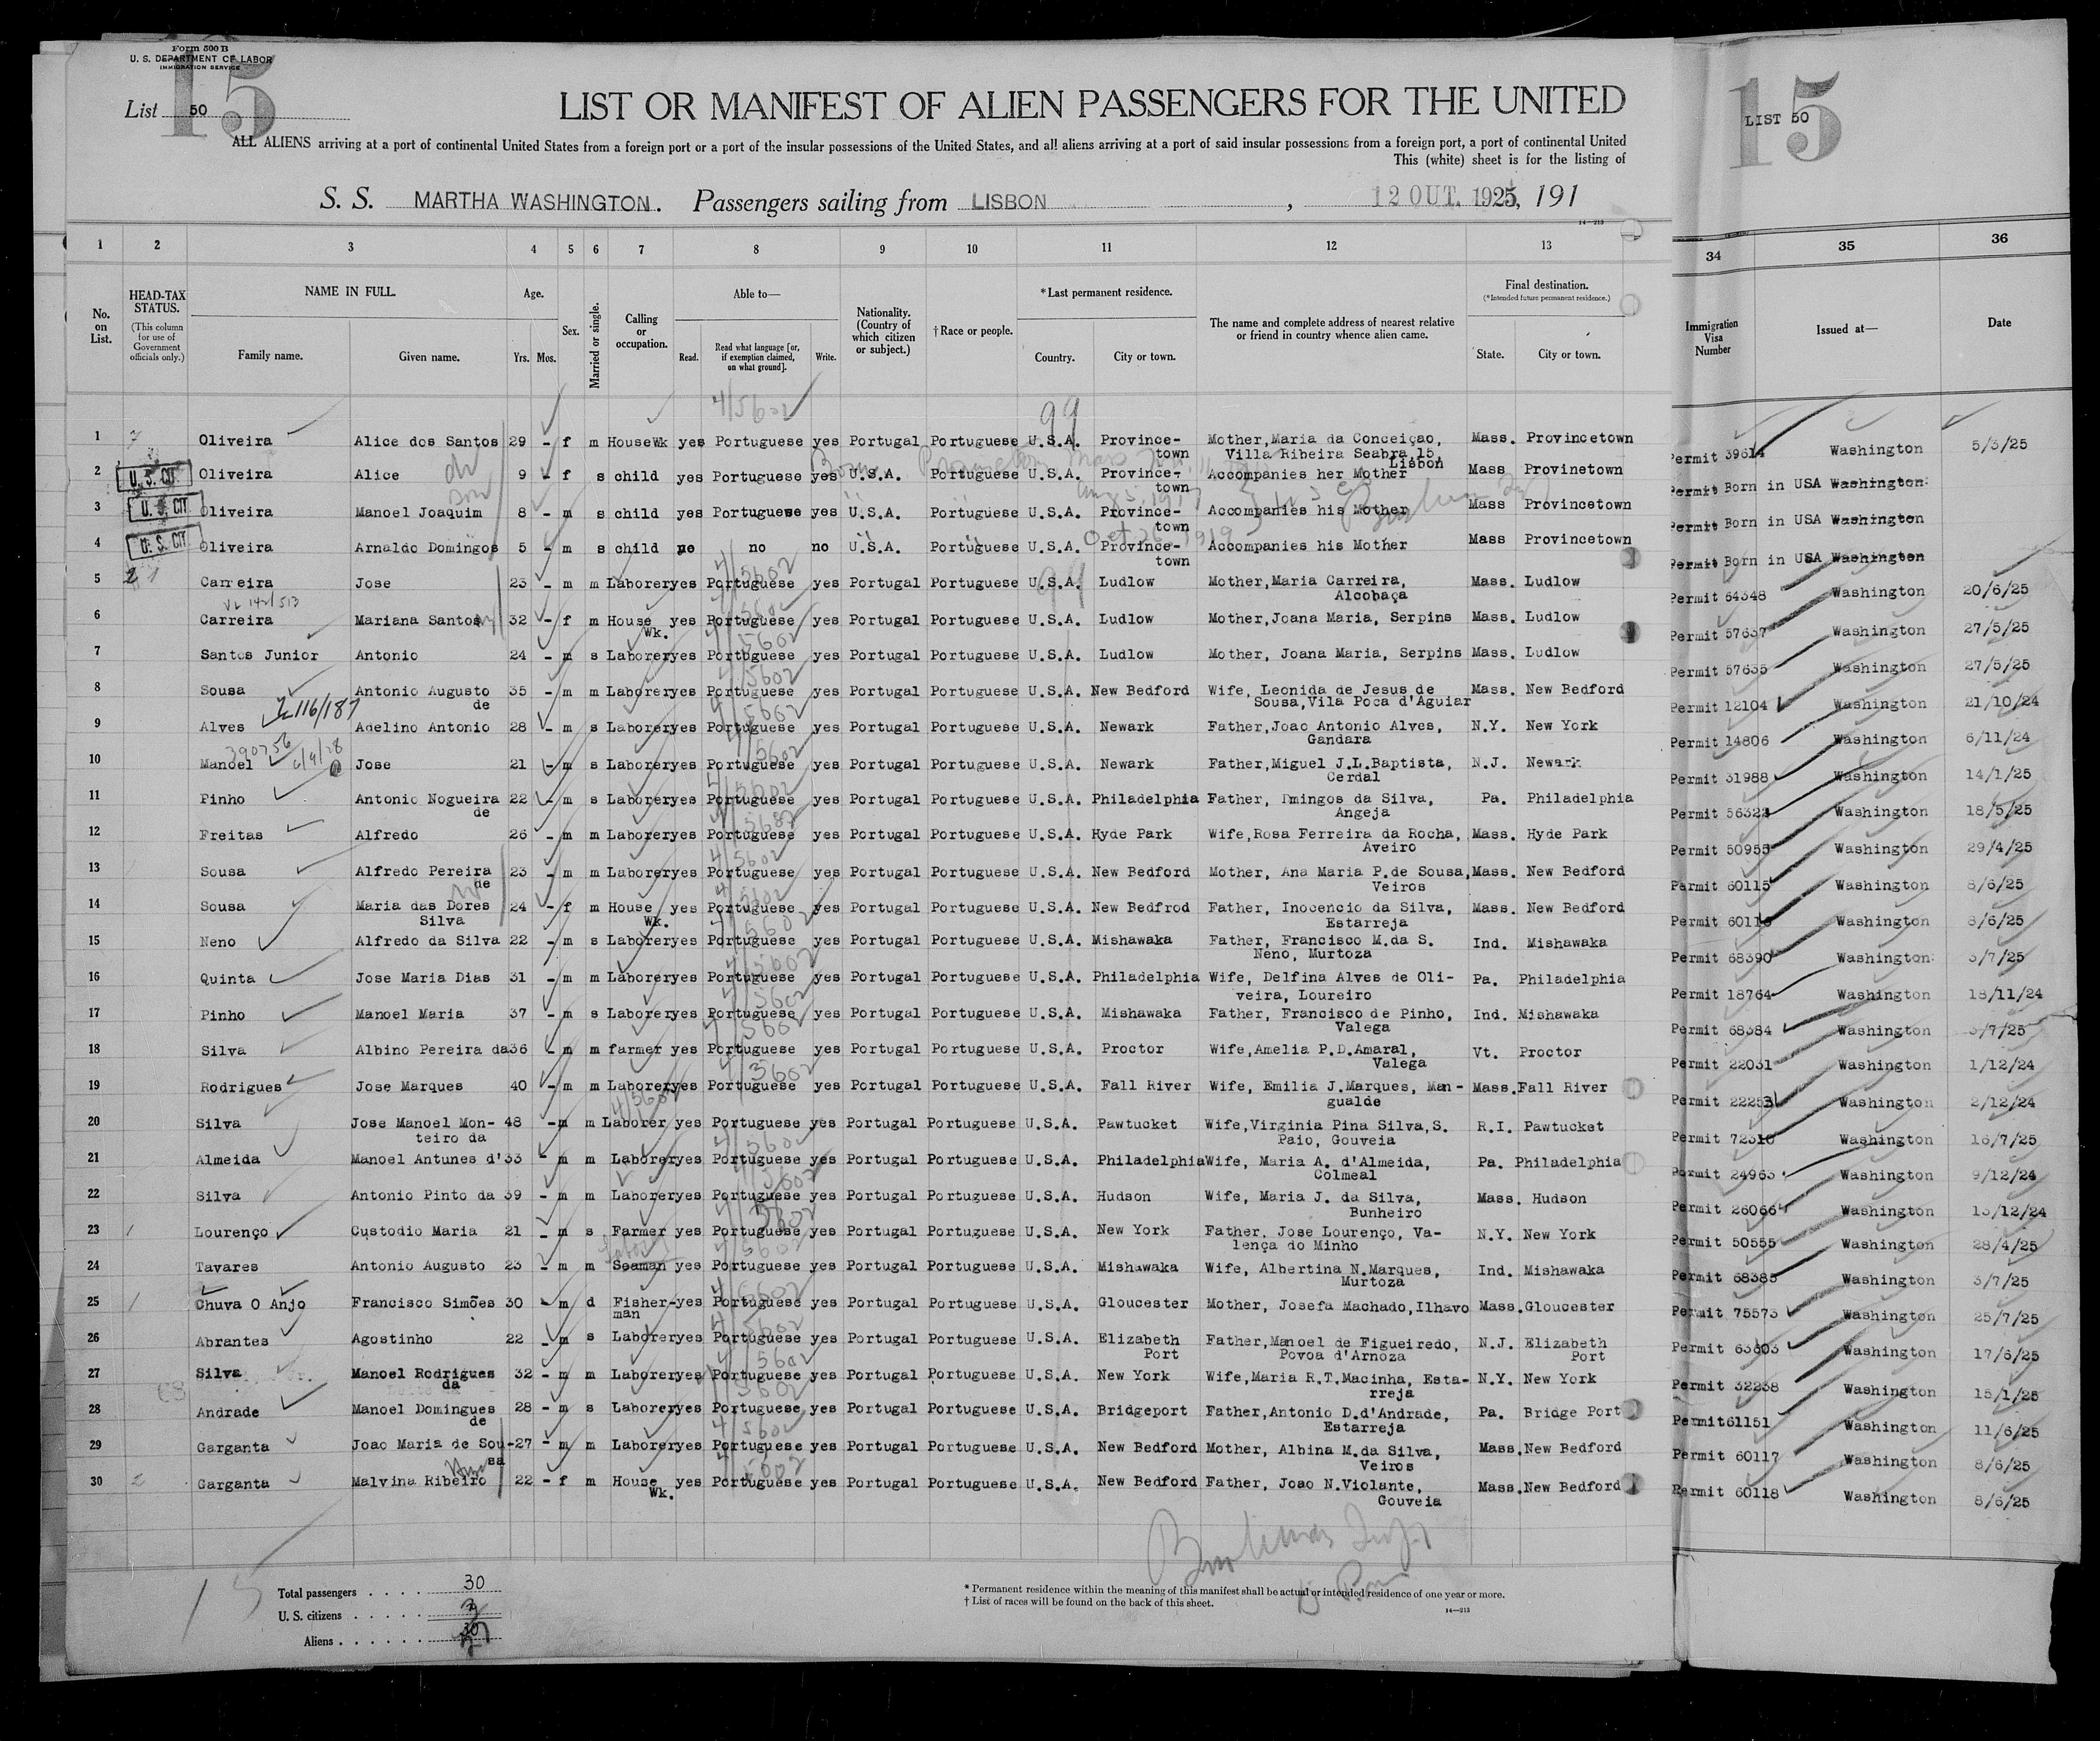 Form 500 B
U. S. DEPARTMENT OF LABOR
IMMIGRATION SERVICE
15
List 50
LIST OR MANIFEST OF ALIEN PASSENGERS FOR THE UNITED
ALL ALIENS arriving at a port of continental United States from a foreign port or a port of the insular possessions of the United States, and all aliens arriving at a port of said insular possessions from a foreign port, a port of continental United
This (white) sheet is for the listing of
S. S. MARTHA WASHINGTON. Passengers sailing from LISBON , 12 OUT. 1925, 191
14—213
15
LIST 50
1 2 3 4 5 6 7 8 9 10 11 12 13 34 35 36
No. on List.
HEAD-TAX STATUS.
(This column for use of Government officials only.)
NAME IN FULL.
Family name. Given name.
Age.
Yrs. Mos.
Sex.
Married or single.
Calling or occupation.
Able to—
Read. Read what language [or, if exemption claimed, on what ground]. Write.
Nationality. (Country of which citizen or subject.)
†Race or people.
*Last permanent residence.
Country. City or town.
The name and complete address of nearest relative or friend in country whence alien came.
Final destination.
(*Intended future permanent residence.)
State. City or town.
Immigration Visa Number
Issued at—
Date
4/5602 99
1 Oliveira Alice dos Santos 29 - f m HouseWk yes Portuguese yes Portugal Portuguese U.S.A. Province- Mother,Maria da Conceiçao, Mass. Provincetown Permit 39614 Washington 5/3/25
town Villa Ribeira Seabra 15,
Lisbon
2 U. S. CIT Oliveira Alice 9 - f s child yes Portuguese yes U.S.A. Portuguese U.S.A. Province- Accompanies her Mother Mass Provinetown Permit Born in USA Washington
town
3 U. S. CIT Oliveira Manoel Joaquim 8 - m s child yes Portuguese yes U.S.A. Portuguese U.S.A. Province- Accompanies his Mother Mass Provincetown Permit Born in USA Washington
town
4 U. S. CIT Oliveira Arnaldo Domingos 5 - m s child no no no U.S.A. Portuguese U.S.A. Province- Accompanies his Mother Mass Provincetown Permit Born in USA Washington
town
5 Carreira Jose 23 - m m Laborer yes Portuguese yes Portugal Portuguese U.S.A. Ludlow Mother,Maria Carreira, Mass. Ludlow Permit 64348 Washington 20/6/25
Alcobaça
6 Carreira Mariana Santos 32 - f m House yes Portuguese yes Portugal Portuguese U.S.A. Ludlow Mother,Joana Maria, Serpins Mass. Ludlow Permit 57637 Washington 27/5/25
Wk.
7 Santos Junior Antonio 24 - m s Laborer yes Portuguese yes Portugal Portuguese U.S.A. Ludlow Mother, Joana Maria, Serpins Mass. Ludlow Permit 57635 Washington 27/5/25
8 Sousa Antonio Augusto 35 - m m Laborer yes Portuguese yes Portugal Portuguese U.S.A. New Bedford Wife, Leonida de Jesus de Mass. New Bedford Permit 12104 Washington 21/10/24
de Sousa,Vila Poca d'Aguiar
116/187
9 Alves Adelino Antonio 28 - m s Laborer yes Portuguese yes Portugal Portuguese U.S.A. Newark Father,Joao Antonio Alves, N.Y. New York Permit 14806 Washington 6/11/24
Gandara
390756
10 Manoel Jose 21 - m s Laborer yes Portuguese yes Portugal Portuguese U.S.A. Newark Father,Miguel J.L.Baptista, N.J. Newark Permit 31988 Washington 14/1/25
Cerdal
11 Pinho Antonio Nogueira 22 - m s Laborer yes Portuguese yes Portugal Portuguese U.S.A. Philadelphia Father, Dmingos da Silva, Pa. Philadelphia Permit 56322 Washington 18/5/25
de Angeja
12 Freitas Alfredo 26 - m m Laborer yes Portuguese yes Portugal Portuguese U.S.A. Hyde Park Wife,Rosa Ferreira da Rocha, Mass. Hyde Park Permit 50955 Washington 29/4/25
Aveiro
13 Sousa Alfredo Pereira 23 - m m Laborer yes Portuguese yes Portugal Portuguese U.S.A. New Bedford Mother, Ana Maria P.de Sousa, Mass. New Bedford Permit 60115 Washington 8/6/25
de Veiros
14 Sousa Maria das Dores 24 - f m House yes Portuguese yes Portugal Portuguese U.S.A. New Bedfrod Father, Inocencio da Silva, Mass. New Bedford Permit 60116 Washington 8/6/25
Silva Wk. Estarreja
15 Neno Alfredo da Silva 22 - m s Laborer yes Portuguese yes Portugal Portuguese U.S.A. Mishawaka Father, Francisco M.da S. Ind. Mishawaka Permit 68390 Washington 3/7/25
Neno, Murtoza
16 Quinta Jose Maria Dias 31 - m m Laborer yes Portuguese yes Portugal Portuguese U.S.A. Philadelphia Wife, Delfina Alves de Oli- Pa. Philadelphia Permit 18764 Washington 18/11/24
veira, Loureiro
17 Pinho Manoel Maria 37 - m s Laborer yes Portuguese yes Portugal Portuguese U.S.A. Mishawaka Father, Francisco de Pinho, Ind. Mishawaka Permit 68384 Washington 3/7/25
Valega
18 Silva Albino Pereira da 36 - m m farmer yes Portuguese yes Portugal Portuguese U.S.A. Proctor Wife,Amelia P.D.Amaral, Vt. Proctor Permit 22031 Washington 1/12/24
Valega
19 Rodrigues Jose Marques 40 - m m Laborer yes Portuguese yes Portugal Portuguese U.S.A. Fall River Wife, Emilia J.Marques, Man- Mass. Fall River Permit 22253 Washington 2/12/24
gualde
20 Silva Jose Manoel Mon- 48 - m m Laborer yes Portuguese yes Portugal Portuguese U.S.A. Pawtucket Wife,Virginia Pina Silva,S. R.I. Pawtucket Permit 72316 Washington 16/7/25
teiro da Paio, Gouveia
21 Almeida Manoel Antunes d' 33 - m m Laborer yes Portuguese yes Portugal Portuguese U.S.A. Philadelphia Wife, Maria A. d'Almeida, Pa. Philadelphia Permit 24963 Washington 9/12/24
Colmeal
22 Silva Antonio Pinto da 39 - m m Laborer yes Portuguese yes Portugal Portuguese U.S.A. Hudson Wife, Maria J. da Silva, Mass. Hudson Permit 26066 Washington 13/12/24
Bunheiro
23 Lourenço Custodio Maria 21 - m s Farmer yes Portuguese yes Portugal Portuguese U.S.A. New York Father, Jose Lourenço, Va- N.Y. New York Permit 50555 Washington 28/4/25
lença do Minho
24 Tavares Antonio Augusto 23 - m m Seaman yes Portuguese yes Portugal Portuguese U.S.A. Mishawaka Wife, Albertina N.Marques, Ind. Mishawaka Permit 68385 Washington 3/7/25
Murtoza
25 Chuva O Anjo Francisco Simões 30 - m d Fisher- yes Portuguese yes Portugal Portuguese U.S.A. Gloucester Mother, Josefa Machado,Ilhavo Mass. Gloucester Permit 75573 Washington 25/7/25
man
26 Abrantes Agostinho 22 - m s Laborer yes Portuguese yes Portugal Portuguese U.S.A. Elizabeth Father,Manoel de Figueiredo, N.J. Elizabeth Permit 63603 Washington 17/6/25
Port Povoa d'Arnoza Port
27 Silva Manoel Rodrigues 32 - m m Laborer yes Portuguese yes Portugal Portuguese U.S.A. New York Wife,Maria R.T.Macinha, Esta- N.Y. New York Permit 32238 Washington 15/1/25
da rreja
28 Andrade Manoel Domingues 28 - m s Laborer yes Portuguese yes Portugal Portuguese U.S.A. Bridgeport Father,Antonio D.d'Andrade, Pa. Bridge Port Permit 61151 Washington 11/6/25
de Estarreja
29 Garganta Joao Maria de Sou- 27 - m m Laborer yes Portuguese yes Portugal Portuguese U.S.A. New Bedford Mother, Albina M.da Silva, Mass. New Bedford Permit 60117 Washington 8/6/25
sa Veiros
30 Garganta Malvina Ribeiro 22 - f m House yes Portuguese yes Portugal Portuguese U.S.A. New Bedford Father, Joao N.Violante, Mass. New Bedford Permit 60118 Washington 8/6/25
Wk. Gouveia
Total passengers . . . . 30
U. S. citizens . . . . . 3
Aliens . . . . . . 27
* Permanent residence within the meaning of this manifest shall be actual or intended residence of one year or more.
† List of races will be found on the back of this sheet.
14—213